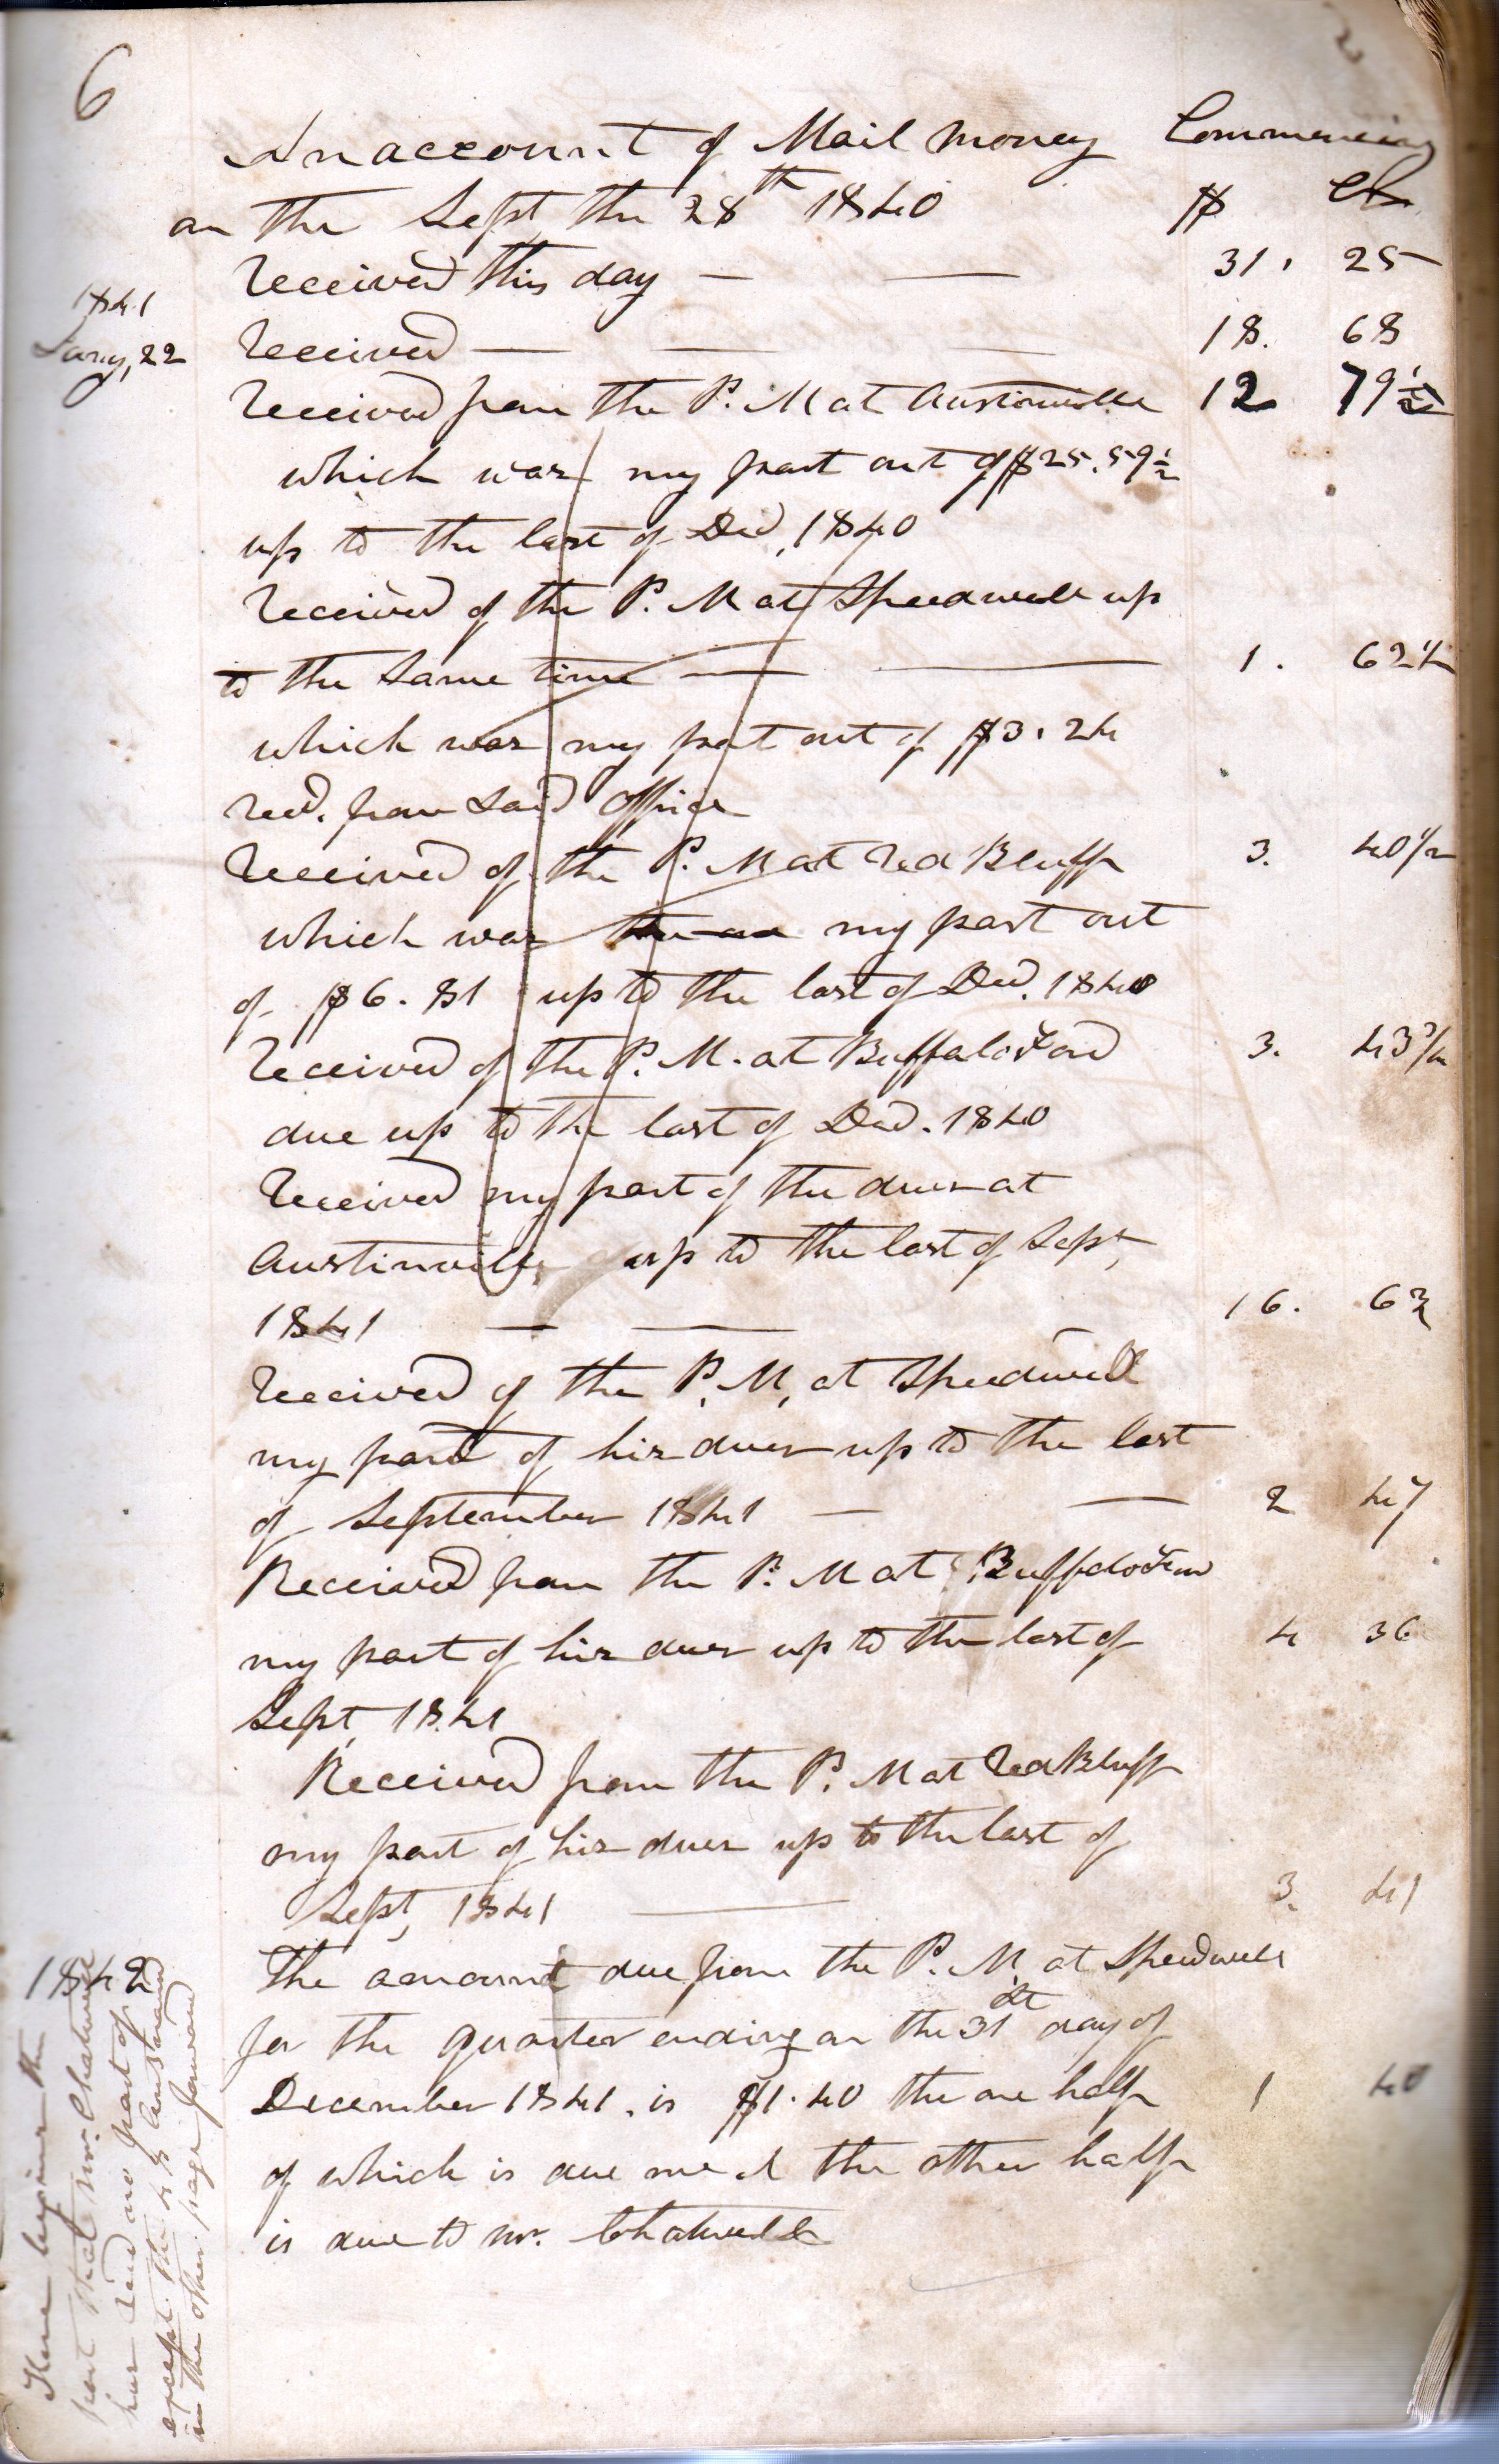 6
An account of Mail money Commencing
on the Sept, the 28th 1840 $ cts
Received this day — — 31. 25
1841
Jany, 22 Received — — — 18. 68
Received from the P. M at Austinville 12 79½
which was my part out of $25.59½
up to the last of Decr, 1840
Received of the P. M at Speedwell up
to the Same time — — 1. 62½
which was my part out of $3.24
recd. from Said Office
Received of the P. M at Red Bluff 3. 40½
which was my part out
of $6.81 up to the last of Decr. 1840
Received of the P. M. at Buffaloford 3. 43¾
due up to the last of Decr. 1840
Received my part of the dues at
Austinville up to the last of Sept,
1841 — — 16. 62
Received of the P. M, at Speedwell
my part of his dues up to the last
of September 1841 — — 2 47
Received from the P. M at Buffaloford
my part of his dues up to the last of 4 36
Sept, 1841
Received from the P. M at Red Bluff
my part of his dues up to the last of
Sept, 1841 — 3. 41
1842
The amount due from the P. M. at Speedwell
for the quarter ending on the 31st day of
December 1841. is $1.40 the one half 1 40
of which is due me & the other half
is due to Mr. Chatwell
Here begins the
part that Mr. Chatwell
has had no part of
except the
in the other page forward